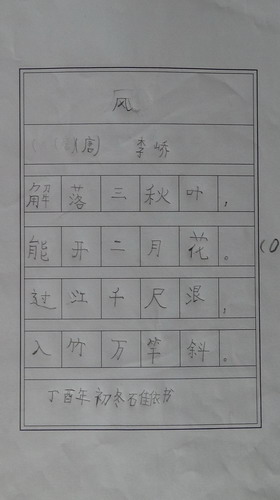 风
(唐) 李峤
解落三秋叶，
能开二月花。
过江千尺浪，
入竹万竿斜。
丁酉年初冬石佳依书